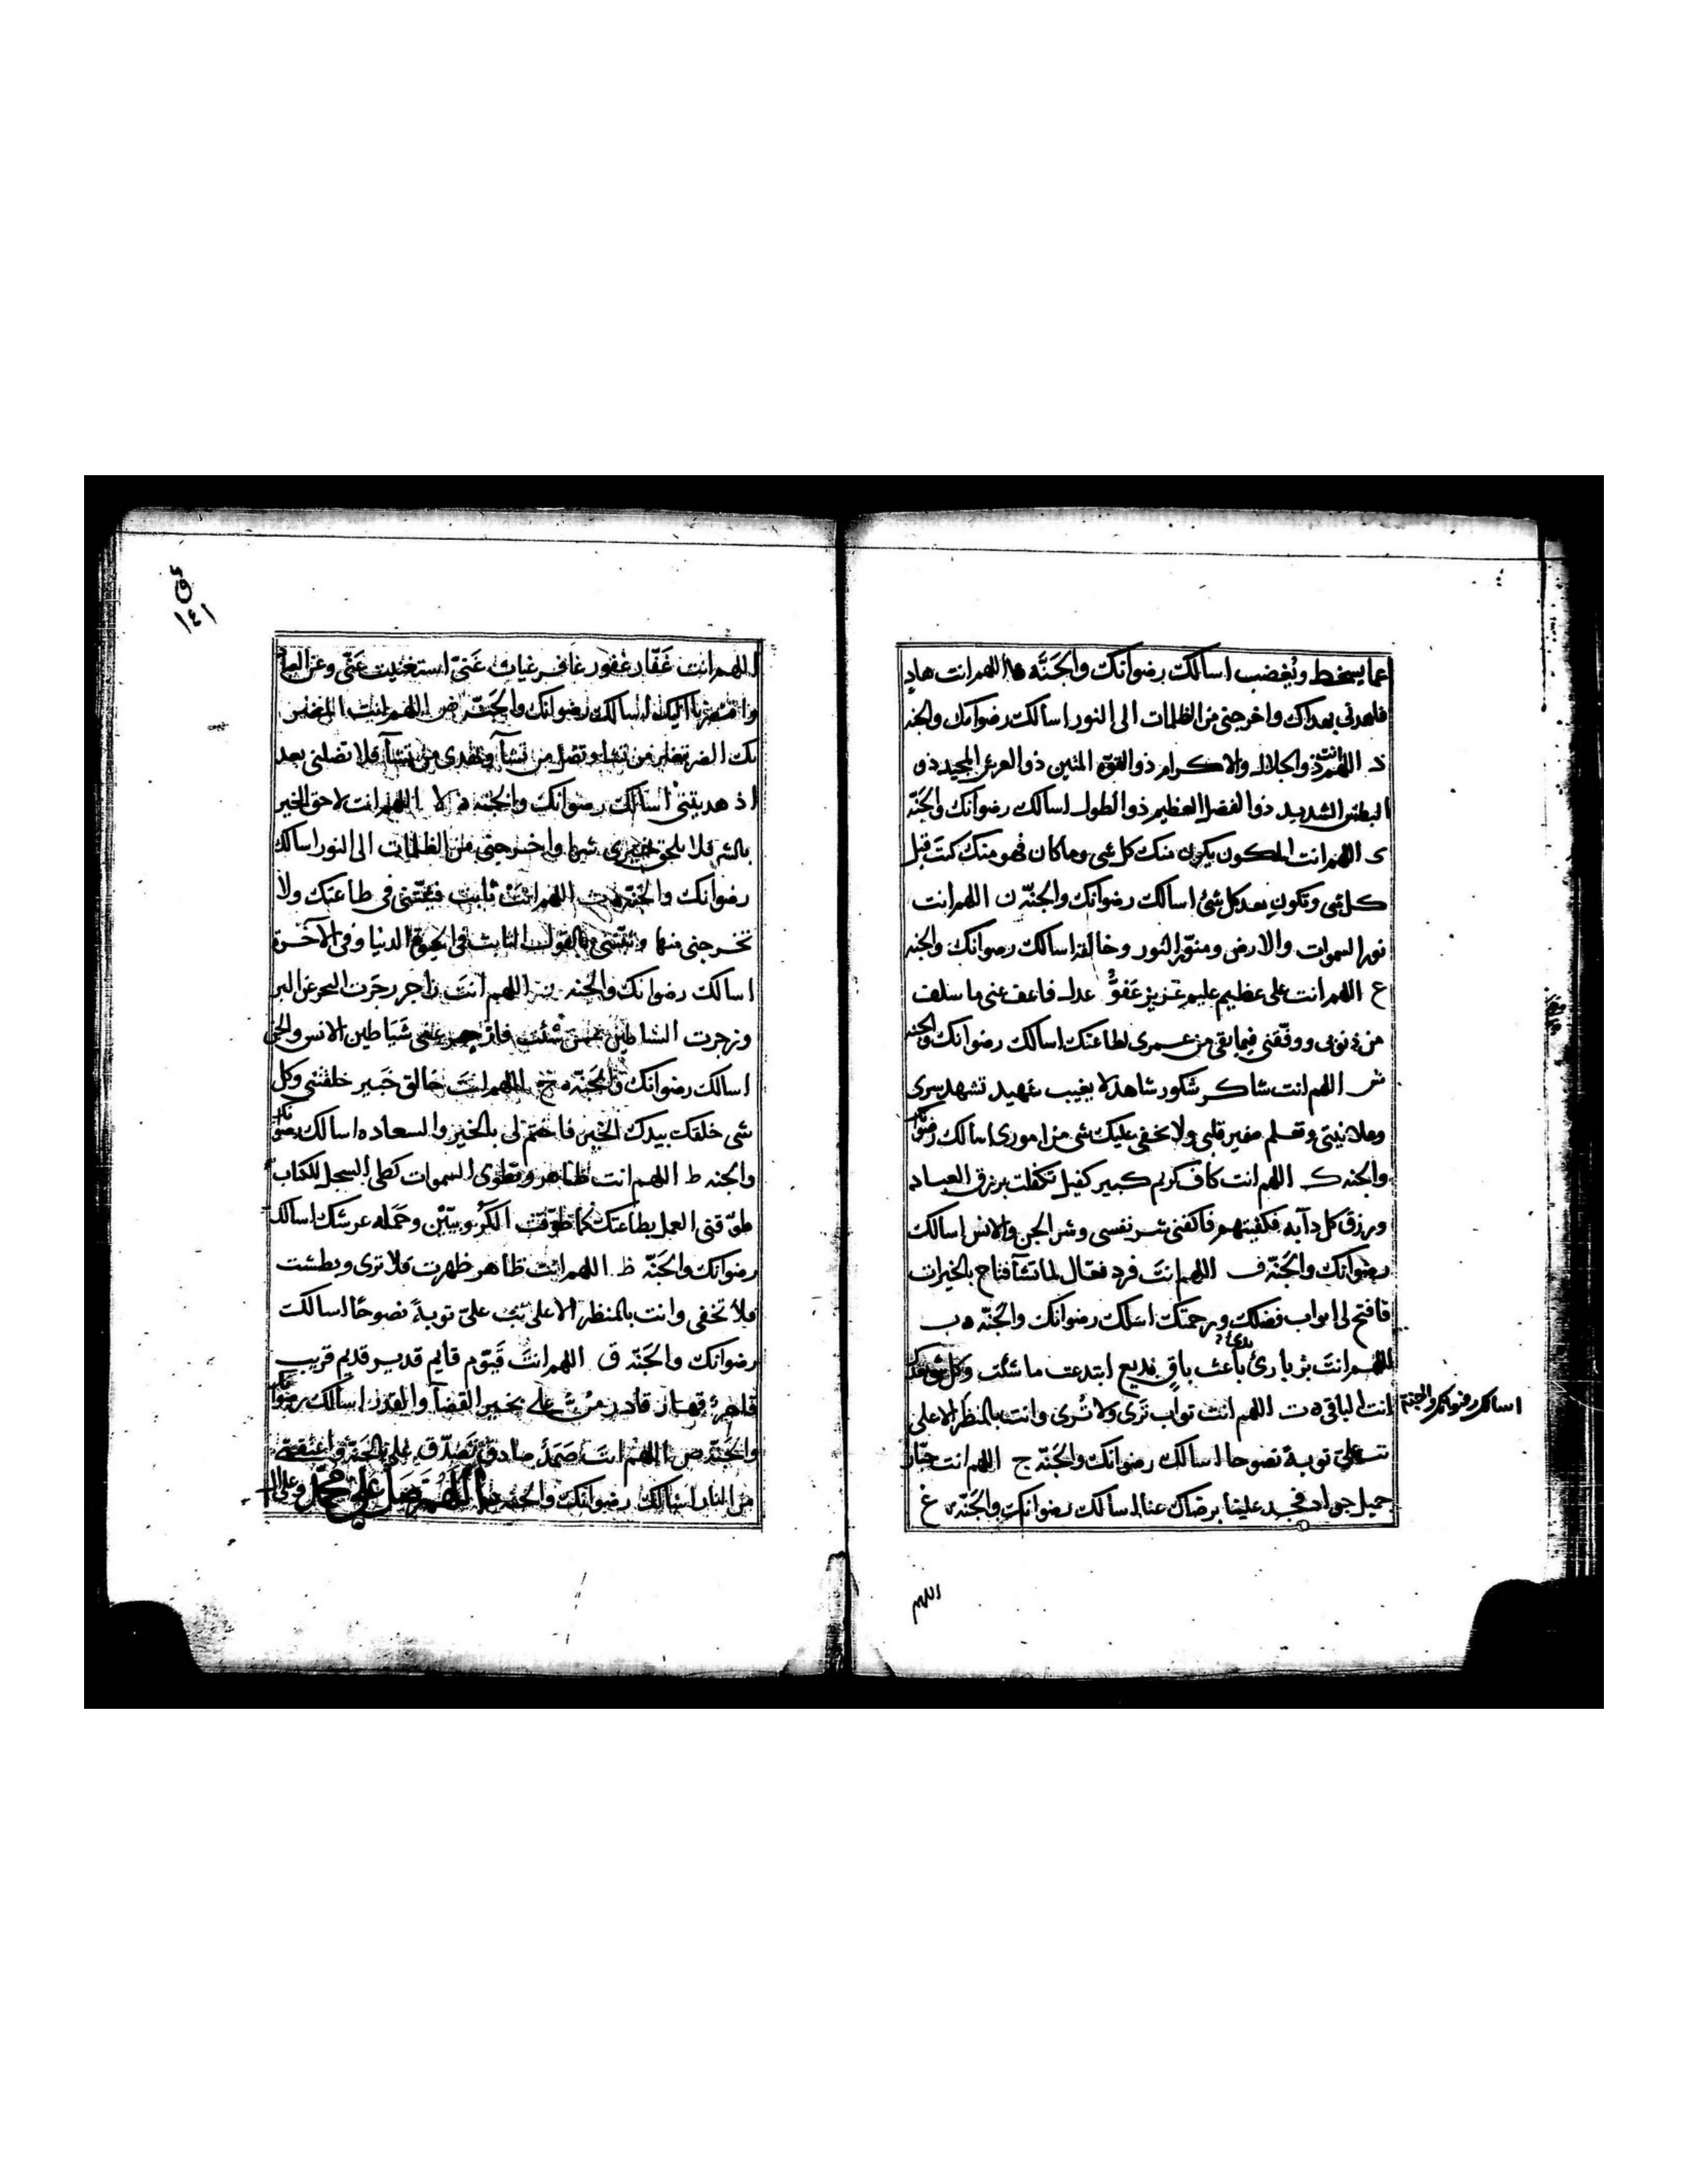 عما يسخط ويُغضب اسالك رضوانك والجَنَّه ها اللهم انت هادٍ
فاهدني بهداك واخرجني من الظلمات الى النور اسالك رضوانك والجنه
ذ اللهم انت ذو الجلال والاكرام ذو القوة المتين ذو العرش المجيد ذو
البطش الشديد ذو الفضل العظيم ذو الطول اسالك رضوانك والجَنّه
ى اللهم انت المكون يكون منك كل شى وما كان فهو منك كنت قبل
كل شى وتكون بعد كل شئ اسالك رضوانك والجنّه ن اللهم انت
نور السموات والارض ومنوّر النور وخالقه اسالك رضوانك والجنه
ع اللهم انت على عظيم عليم عزيز عَفوٌّ عدل فاعف عنى ما سلف
من ذنوبى ووفّقنى فيما بقى من عمرى لطاعتك اسالك رضوانك والجنه
ش اللهم انت شاكر شكور شاهد لا يغيب شهيد تشهد سرى
وعلانيتى وتعلم ضمير قلبى ولا يخفى عليك شى من امورى اسالك رضوانك
والجنه ك اللهم انت كاف كريم كبير كفيل تكفلت برزق العباد
ورزق كل دآبه فكفيتهم فاكفنى شر نفسى وشر الجن والانس اسالك
رضوانك والجَنّه ف اللهم انتَ فرد فعّال لما تشآ فتاح بالخيرات
فافتح لى ابواب فضلك ورحمتك اسلك رضوانك والجَنّه ه ب
اللهم انتَ بر بارئ باعث باقٍ بديع ابتدعت ما شئت وكل شى
انت الباقى ه ت اللهم انت تواب تَرى ولا تُرى وانت بالمنظر الاعلى
اسالك رضوانك والجنة
تب علىّ توبة نصوحا اسالك رضوانك والجَنّه ج اللهم انت جبّار
جميل جواد فجد علينا برضاك عنا اسالك رضوانك والجَنّه غ
اللهم
١٤١
اللهم انت غَفّار غفور غافر غياث غَنىّ استغنيت عَنّى وعن
اليك اسالك رضوانك والجَنّه ض اللهم انت
من تشا وتضل من تشآ وتهدى من تشآ فلا تضلنى بعد
اذ هديتنى اسالك رضوانك والجَنّه لا اللهم انت لاحق الخير
بالشر فلا يلحق واخرجنى من الظلمات الى النور اسالك
رضوانك والجَنّه ث اللهم انتَ ثابت فثبّتنى فى طاعتك ولا
تخرجنى منها وثبّتنى بالقول الثابت فى الحيوة الدنيا وفى الآخرة
اسالك رضوانك والجنه ز اللهم انتَ زاجر زجَرت البحر عن البر
وزجرت الشياطين شئت فازجر عنى شَيَاطين الانس والجن
اسالك رضوانك والجَنّه خ اللهم انتَ خالق خَبير خلقتنى وكل
شى خلقك بيدك الخير فاختم لى بالخير والسعاده اسالك رضوانك
والجنه ط اللهم انت طاهر وتطوى السموات كطى السجل للكتاب
طوّقنى العمل بطاعتك كما طوّقت الكَرُوبيّيْن وحَمَله عرشك اسالك
رضوانك والجَنّه ظ اللهم انت ظاهر ظهرت فلا ترى وبطنت
فلا تخفى وانت بالمنظر الاعلى تب علىّ توبةً نصوحًا اسالك
رضوانك والجَنّه ق اللهم انتَ قَيّوم قايم قدير قديم قريب
قاهر قهار قادر علىّ بخير القضآ والقدر اسالك رضوانك
والجَنّه ص اللهم انتَ صَمَدٌ صادق تَصَدّق علىّ بالجَنّه واعتقنى
من النار اسالك رضوانك والجنه اللهم صَلّ على محمّد وعلى ال